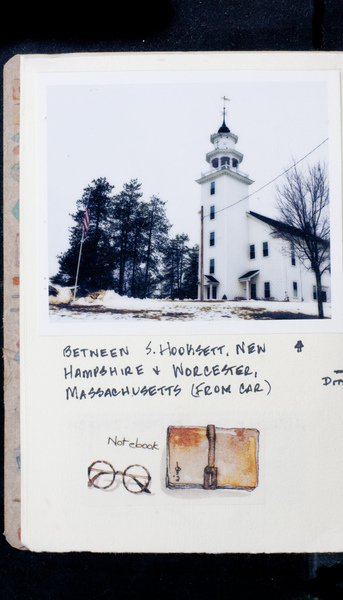 BETWEEN S. HOOKSETT, NEW
HAMPSHIRE & WORCESTER,
MASSACHUSETTS (FROM CAR)
Notebook